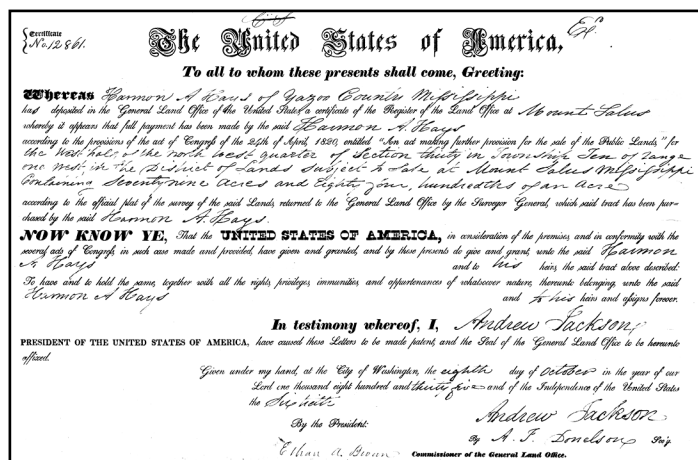 Certificate
No. 12861.
The United States of America,
To all to whom these presents shall come, Greeting:
Whereas Harmon A Hays of Yazoo County Mississippi
has deposited in the General Land Office of the United States, a certificate of the Register of the Land Office at Mount Salus
whereby it appears that full payment has been made by the said Harmon A. Hays
according to the provisions of the act of Congress of the 24th of April, 1820, entitled "An act making further provision for the sale of the Public Lands," for
the West half of the north West quarter of Section thirty in Township Ten of range
one West, in the District of Lands Subject to Sale at Mount Salus Mississippi
Containing Seventy nine Acres and Eighty four, hundredths of an Acre
according to the official plat of the survey of the said Lands, returned to the General Land Office by the Surveyor General, which said tract has been pur-
chased by the said Harmon A. Hays.
NOW KNOW YE, That the UNITED STATES OF AMERICA, in consideration of the premises, and in conformity with the
several acts of Congress, in such case made and provided, have given and granted, and by these presents do give and grant, unto the said Harmon
A Hays and to his heirs, the said tract above described:
To have and to hold the same, together with all the rights, privileges, immunities, and appurtenances of whatsoever nature, thereunto belonging, unto the said
Harmon A Hays and to his heirs and assigns forever.
In testimony whereof, I, Andrew Jackson
PRESIDENT OF THE UNITED STATES OF AMERICA, have caused these Letters to be made patent, and the Seal of the General Land Office to be hereunto
affixed.
Given under my hand, at the City of Washington, the eighth day of October in the year of our
Lord one thousand eight hundred and thirty five and of the Independence of the United States
the Sixtieth
By the President: Andrew Jackson
By A. J. Donelson Sec'y.
Ethan A. Brown Commissioner of the General Land Office.